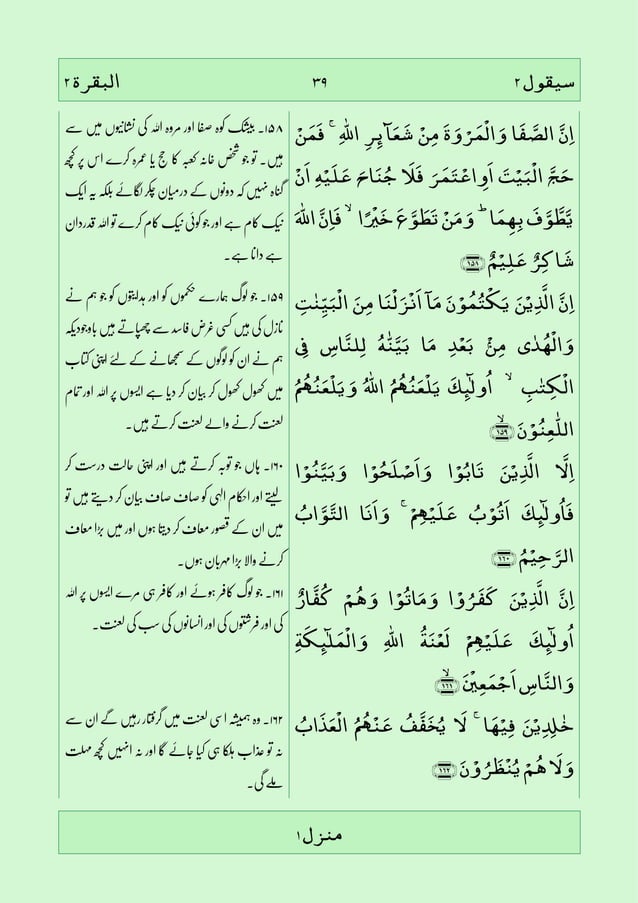 سیقول ٢
٣٩
البقرة ٢
اِنَّ الصَّفَا وَ الْمَرْوَةَ مِنْ شَعَآىِٕرِ اللّٰهِ ۚ فَمَنْ
حَجَّ الْبَيْتَ اَوِاعْتَمَرَ فَلَا جُنَاحَ عَلَيْهِ اَنْ
يَّطَّوَّفَ بِهِمَا ؕ وَ مَنْ تَطَوَّعَ خَيْرًا ۙ فَاِنَّ اللّٰهَ
شَاكِرٌ عَلِيْمٌ ﴿١٥٨﴾
اِنَّ الَّذِيْنَ يَكْتُمُوْنَ مَآ اَنْزَلْنَا مِنَ الْبَيِّنٰتِ
وَالْهُدٰى مِنْۢ بَعْدِ مَا بَيَّنّٰهُ لِلنَّاسِ فِى
الْكِتٰبِ ۙ اُولٰٓىِٕكَ يَلْعَنُهُمُ اللّٰهُ وَ يَلْعَنُهُمُ
اللّٰعِنُوْنَ ۙ﴿١٥٩﴾
اِلَّا الَّذِيْنَ تَابُوْا وَاَصْلَحُوْا وَبَيَّنُوْا
فَاُولٰٓىِٕكَ اَتُوْبُ عَلَيْهِمْ ۚ وَاَنَا التَّوَّابُ
الرَّحِيْمُ ﴿١٦٠﴾
اِنَّ الَّذِيْنَ كَفَرُوْا وَمَاتُوْا وَهُمْ كُفَّارٌ
اُولٰٓىِٕكَ عَلَيْهِمْ لَعْنَةُ اللّٰهِ وَالْمَلٰٓىِٕكَةِ
وَالنَّاسِ اَجْمَعِيْنَ ۙ﴿١٦١﴾
خٰلِدِيْنَ فِيْهَا ۚ لَا يُخَفَّفُ عَنْهُمُ الْعَذَابُ
وَلَا هُمْ يُنْظَرُوْنَ ﴿١٦٢﴾
١٥٨۔ بیشک کوہ صفا اور مروہ اللہ کی نشانیوں میں سے
ہیں۔ تو جو شخص خانہ کعبہ کا حج یا عمرہ کرے اس پر کچھ
گناہ نہیں کہ دونوں کے درمیان چکر لگائے بلکہ یہ ایک
نیک کام ہے اور جو کوئی نیک کام کرے تو اللہ قدردان
ہے دانا ہے۔
١٥٩۔ جو لوگ ہمارے حکموں کو اور ہدایتوں کو جو ہم نے
نازل کی ہیں کسی غرض فاسد سے چھپاتے ہیں باوجودیکہ
ہم نے ان کو لوگوں کے سمجھانے کے لئے اپنی کتاب
میں کھول کھول کر بیان کر دیا ہے ایسوں پر اللہ اور تمام
لعنت کرنے والے لعنت کرتے ہیں۔
١٦٠۔ ہاں جو توبہ کرتے ہیں اور اپنی حالت درست کر
لیتے اور احکام الہی کو صاف صاف بیان کر دیتے ہیں تو
میں ان کے قصور معاف کر دیتا ہوں اور میں بڑا معاف
کرنے والا بڑا مہربان ہوں۔
١٦١۔ جو لوگ کافر ہوئے اور کافر ہی مرے ایسوں پر اللہ
کی اور فرشتوں کی اور انسانوں کی سب کی لعنت۔
١٦٢۔ وہ ہمیشہ اسی لعنت میں گرفتار رہیں گے ان سے
نہ تو عذاب ہلکا ہی کیا جائے گا اور نہ انہیں کچھ مہلت
ملے گی۔
منزل ١